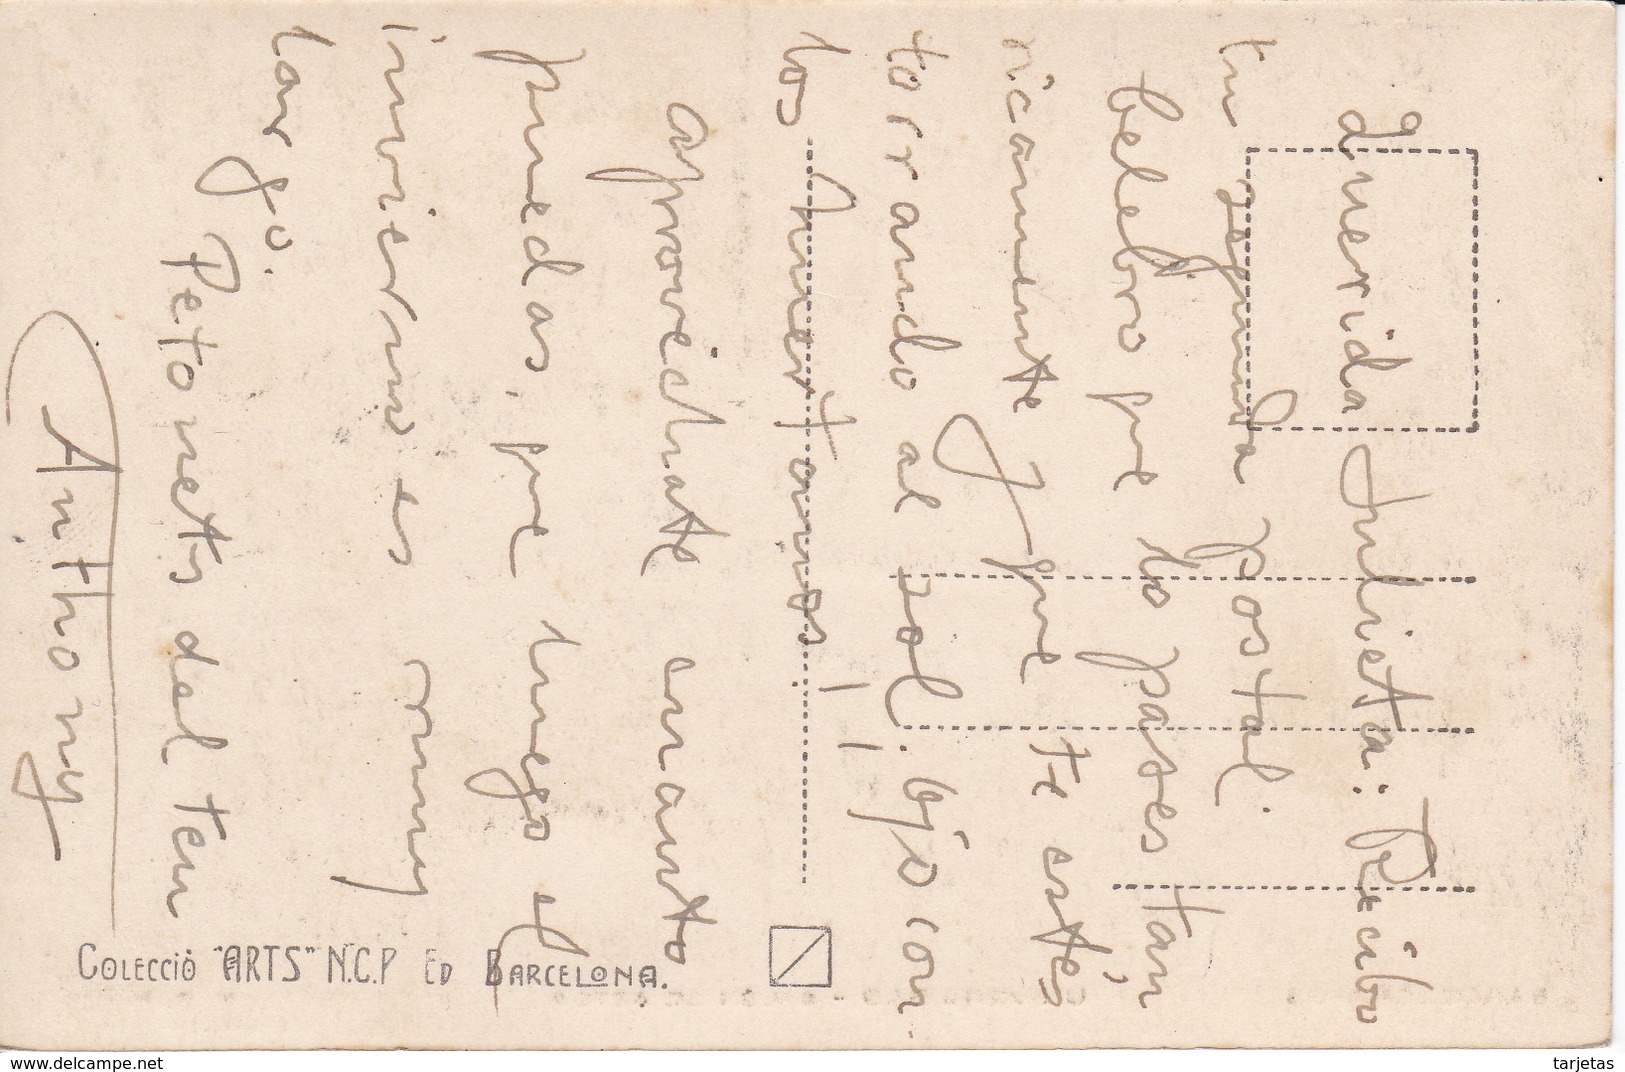 Querida Julieta: Recibo
tu segunda postal.
Celebro que lo pases tan
ricamente y que te estés
torrando al sol. ojo con
los huertanos!!
Aprovechate cuanto
puedas, que luego el
invierno es muy
largo.
Petonets del teu
Anthony
COLECCIÓ "ARTS" N.C.P ED BARCELONA.
www.delcampe.net
tarjetas